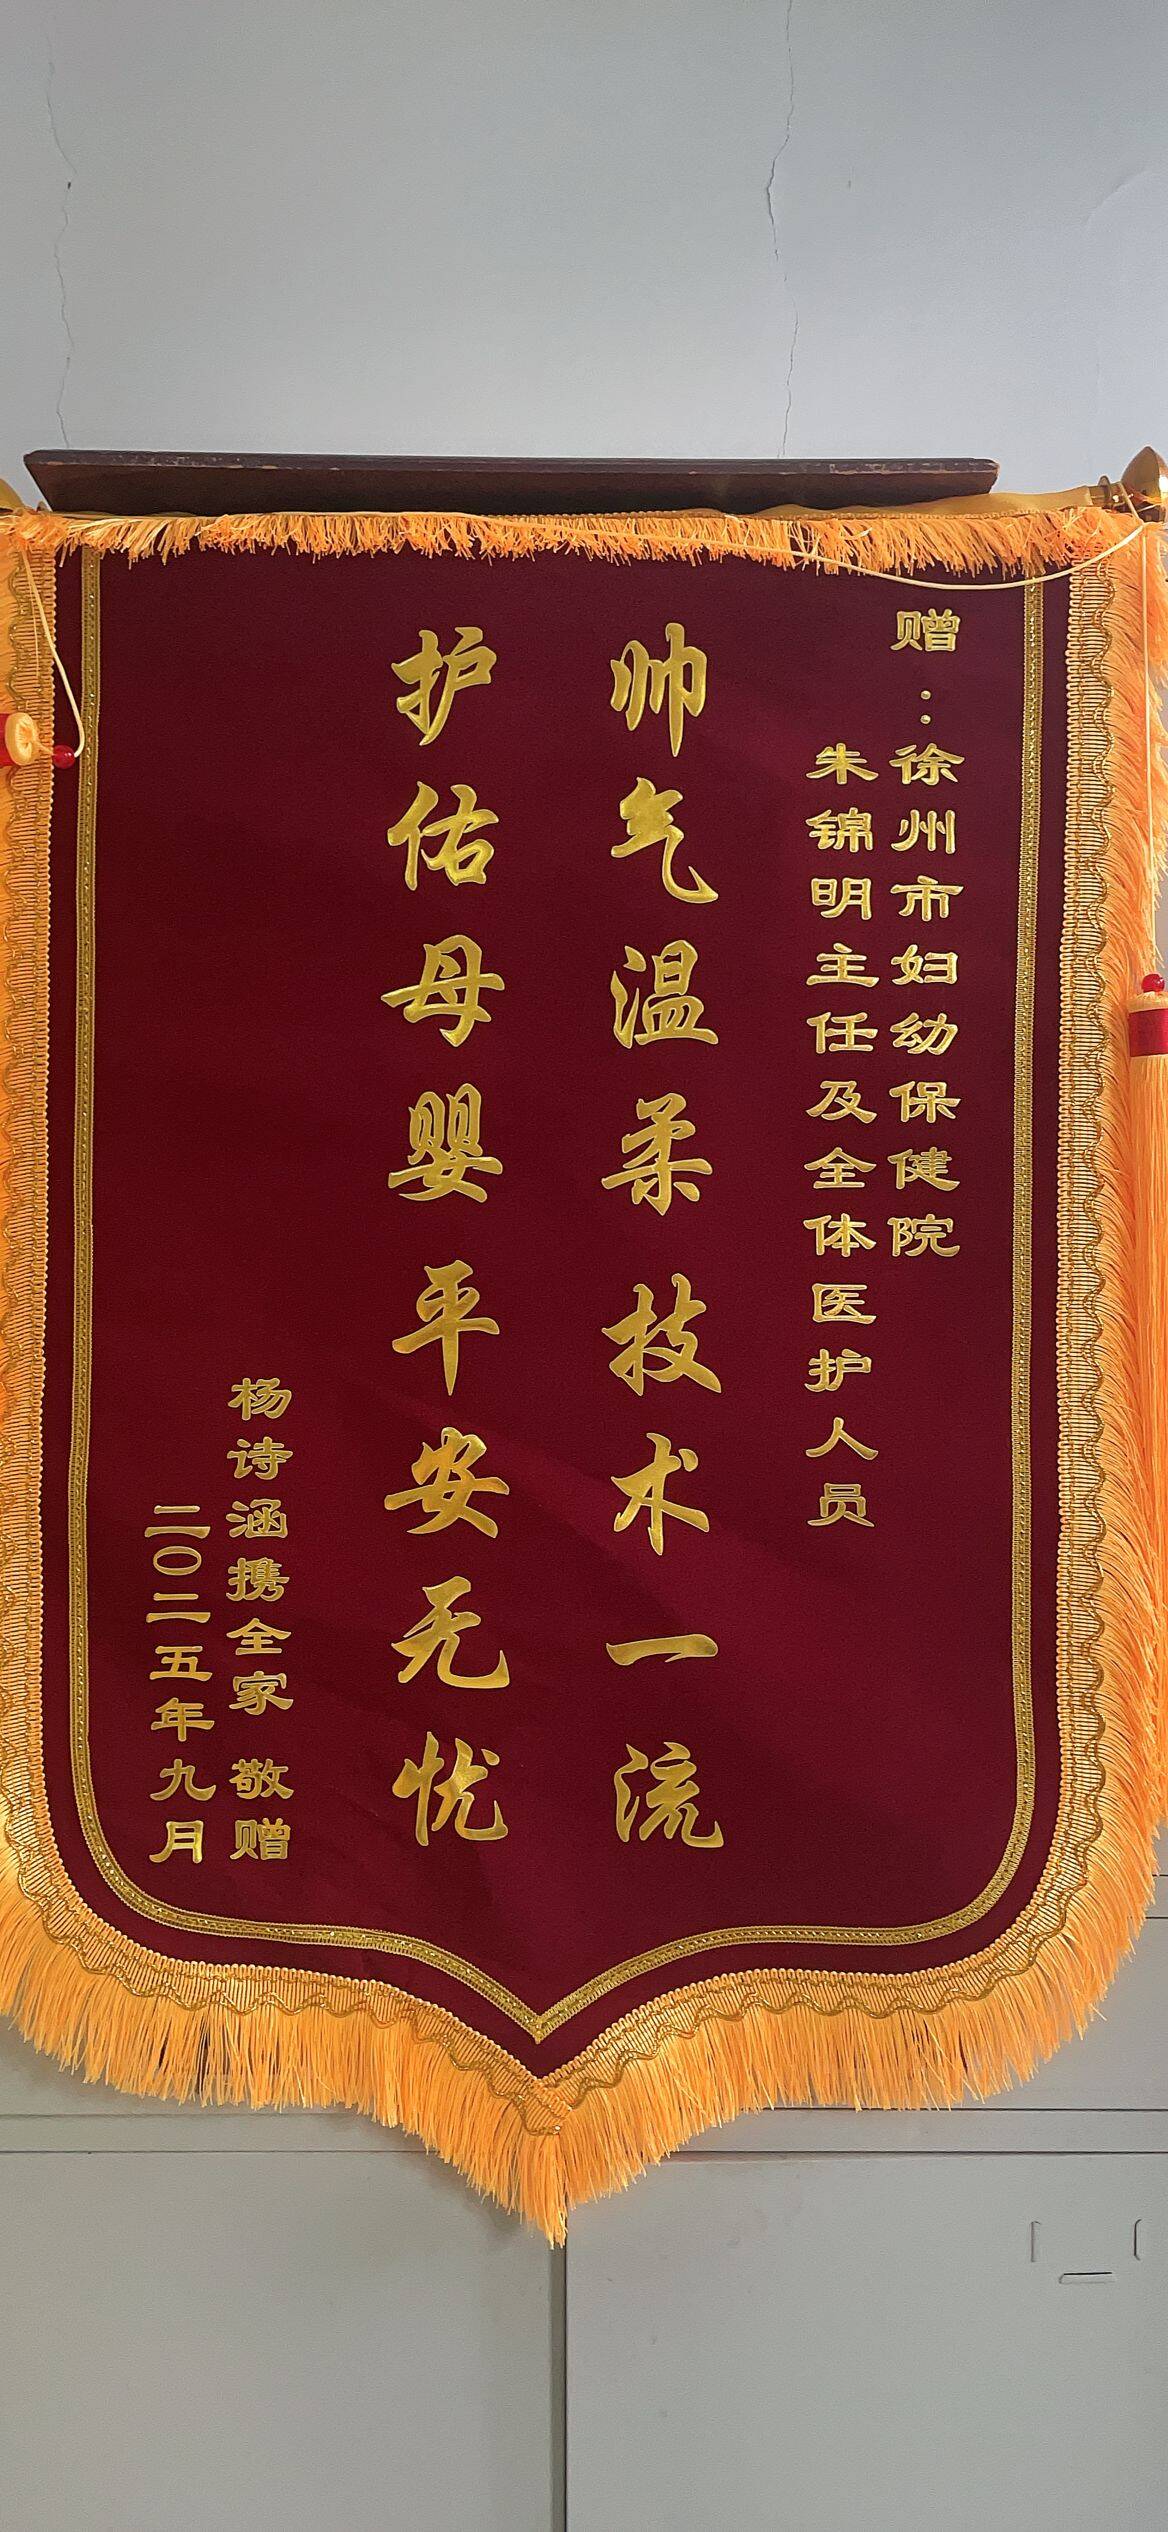 赠：徐州市妇幼保健院
朱锦明主任及全体医护人员
帅气温柔技术一流
护佑母婴平安无忧
杨诗涵携全家 敬赠
二〇二五年九月